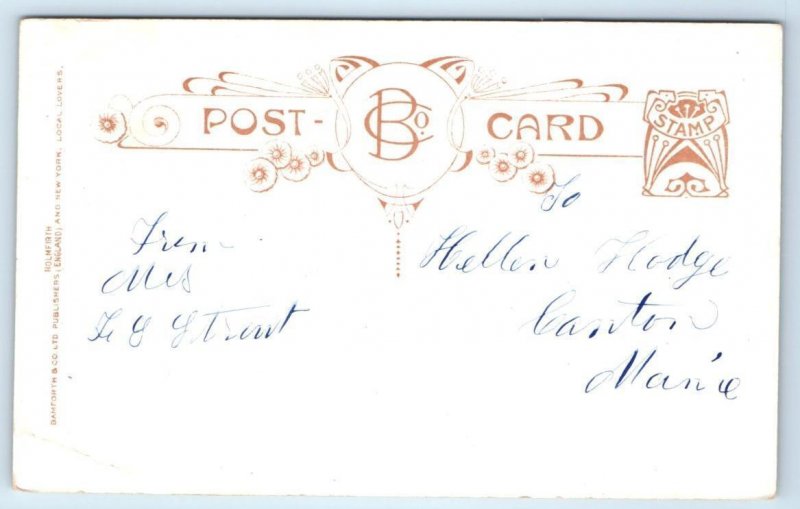 HOLMFIRTH
BAMFORTH & CO. LTD PUBLISHERS (ENGLAND) AND NEW YORK. LOCAL LOVERS.
POST-CARD
B Co.
STAMP
To
From
Mrs
Hellen Hodge
Canton
Manie